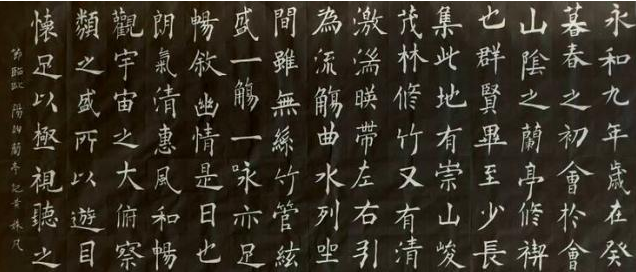 永和九年歲在癸
暮春之初會於會
山陰之蘭亭修禊
也群賢畢至少長
集此地有崇山峻
茂林修竹又有清
激湍暎帶左右引
為流觴曲水列坐
間雖無絲竹管絃
盛一觴一詠亦足
暢敘幽情是日也
朗氣清惠風和暢
觀宇宙之大俯察
類之盛所以遊目
懷足以極視聽之
臨歐陽詢蘭亭記